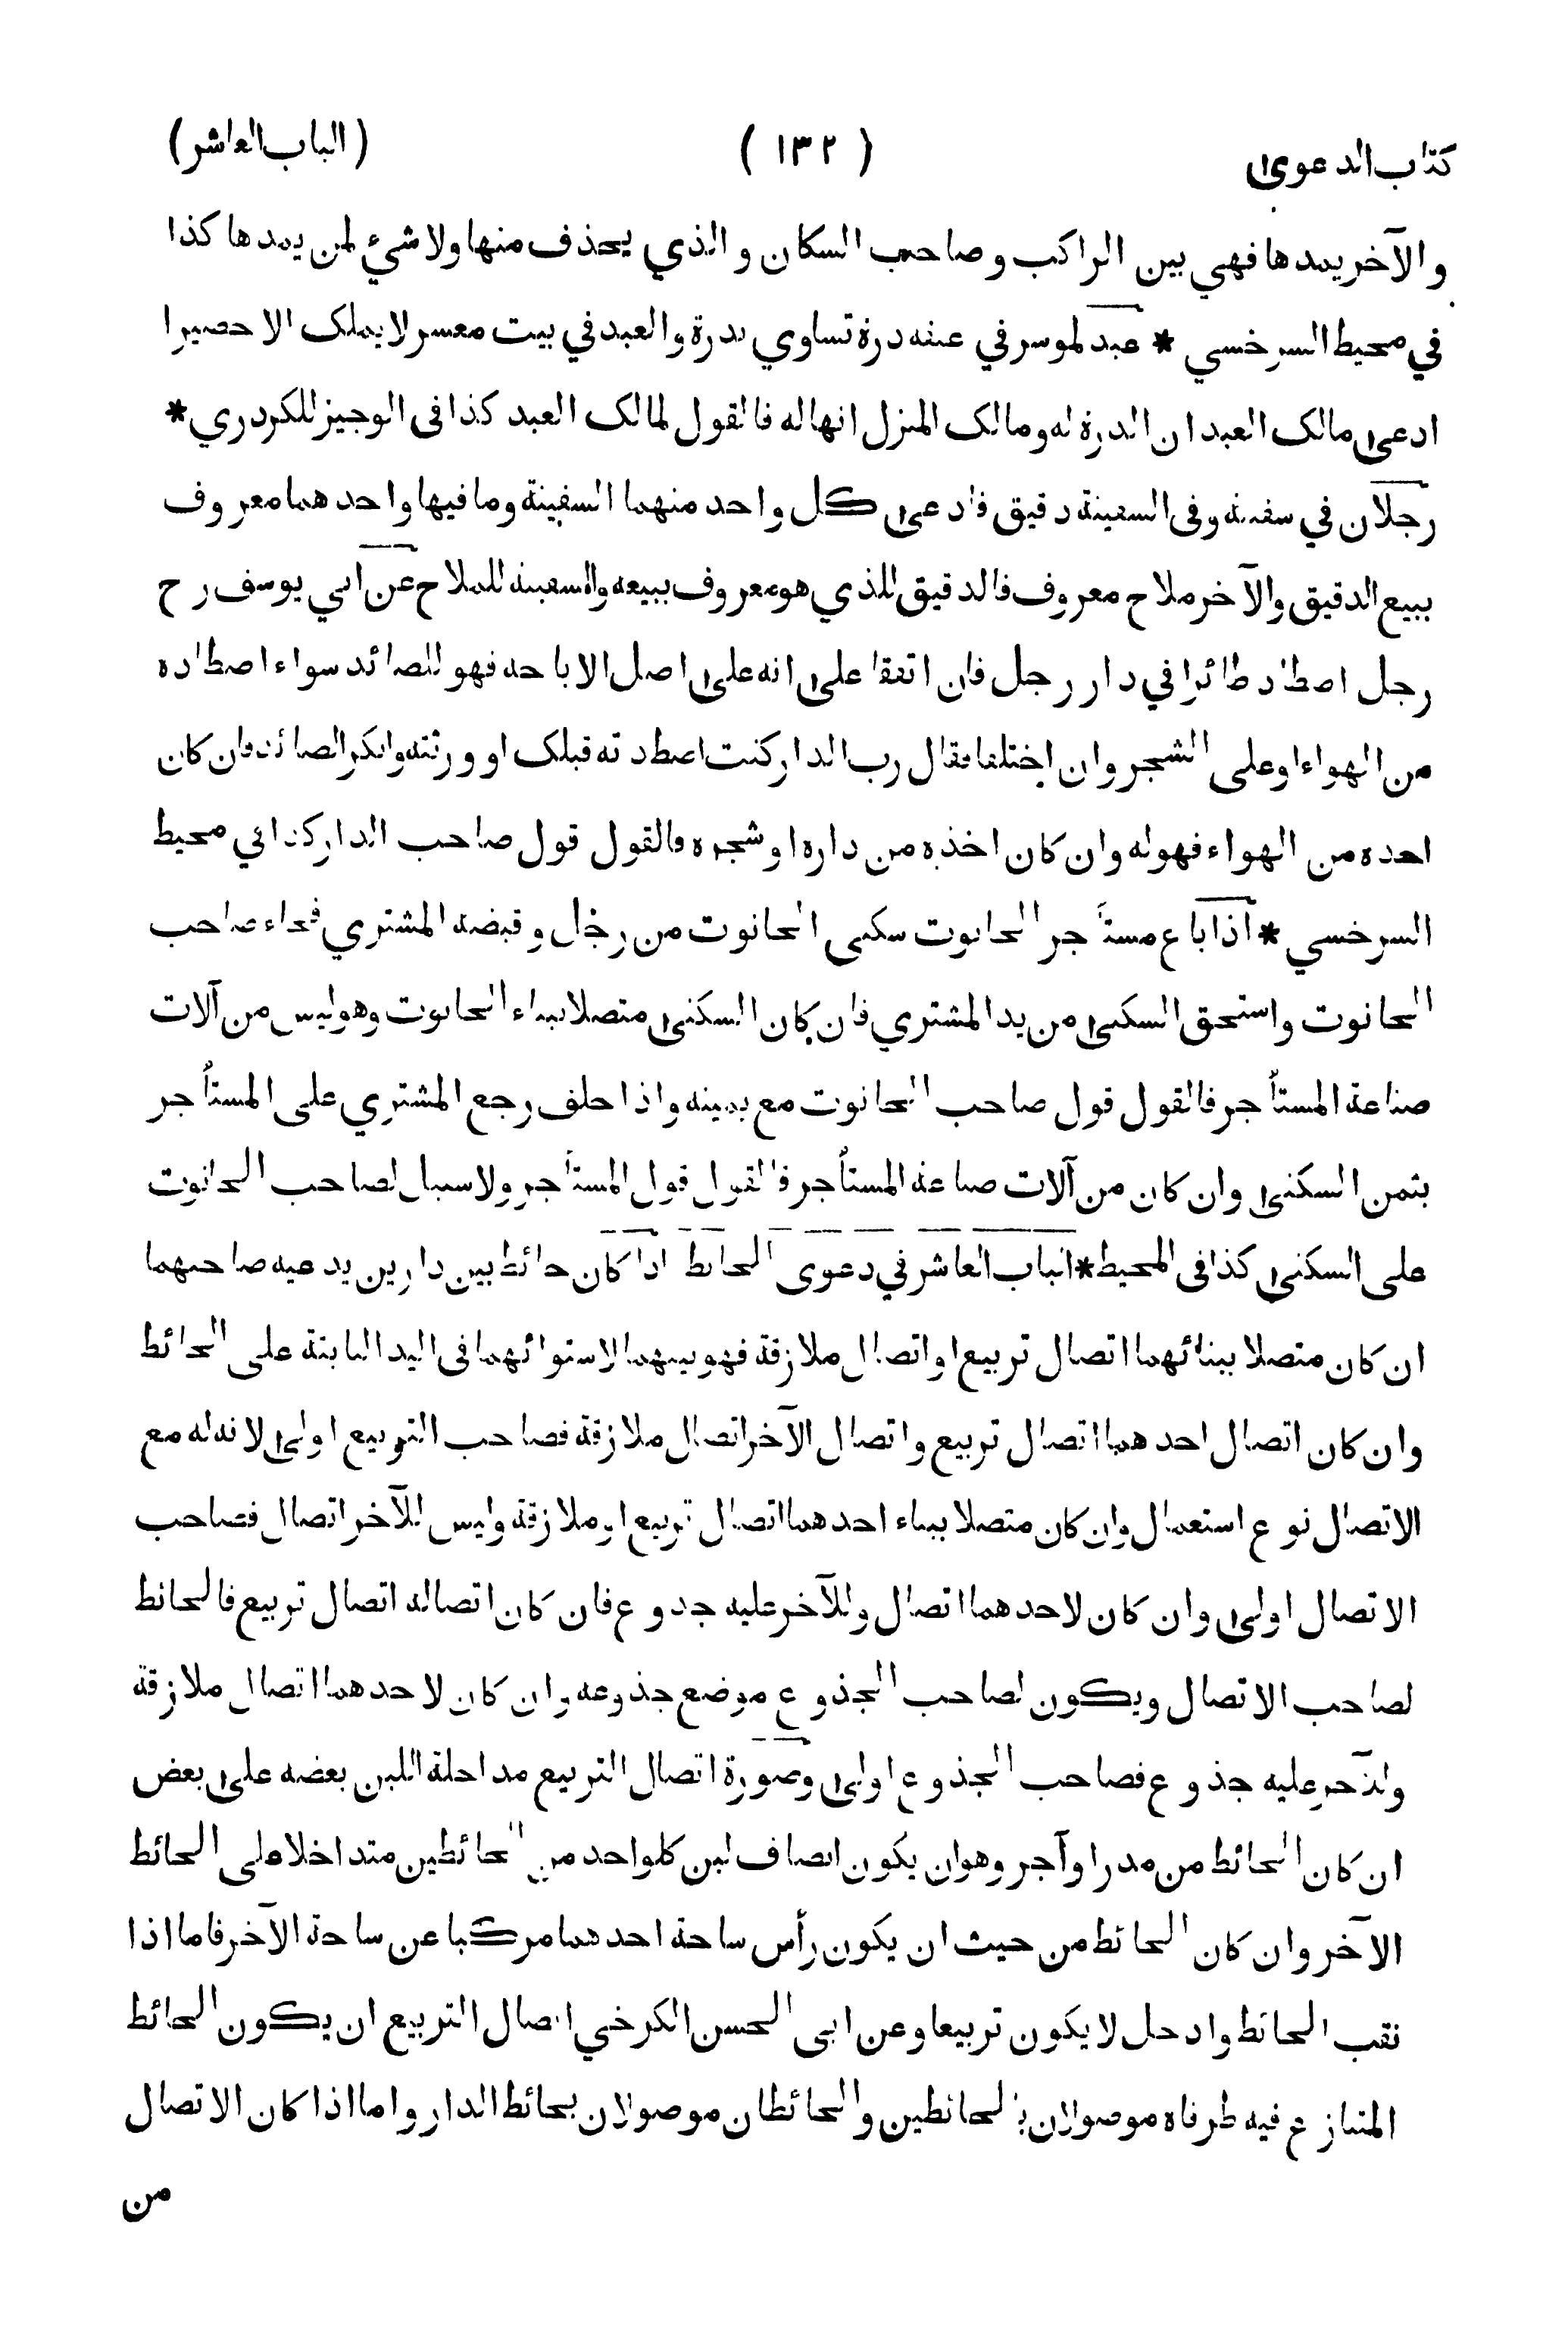 كتاب الدعوى
( ١٣٢ )
( الباب العاشر )
والآخر يمدها فهي بين الراكب وصاحب السكان والذي يحذف منها ولا شيء لمن يمدها كذا
في محيط السرخسي * عبد لموسر في عنقه درة تساوي بدرة والعبد في بيت معسر لا يملك الا حصيرا
ادعى مالك العبد ان الدرة له ومالك المنزل انها له فالقول لمالك العبد كذا فى الوجيز للكردري *
رجلان في سفينة وفى السفينة دقيق فادعى كل واحد منهما السفينة وما فيها واحدهما معروف
ببيع الدقيق والآخر ملاح معروف فالدقيق للذي هو معروف ببيعه والسفينة للملاح عن ابي يوسف رح
رجل اصطاد طائرا في دار رجل فان اتفقا على انه على اصل الاباحة فهو للصائد سواء اصطاده
من الهواء او على الشجر وان اختلفا فقال رب الدار كنت اصطدته قبلك او ورثته وانكر الصائد فان كان
اخذه من الهواء فهو له وان كان اخذه من داره او شجره فالقول قول صاحب الدار كذا في محيط
السرخسي * اذا باع مستأجر الحانوت سكنى الحانوت من رجل وقبضه المشتري فجاء صاحب
الحانوت واستحق السكنى من يد المشتري فان كان السكنى متصلا ببناء الحانوت وهو ليس من آلات
صناعة المستأجر فالقول قول صاحب الحانوت مع يمينه واذا حلف رجع المشتري على المستأجر
بثمن السكنى وان كان من آلات صناعة المستأجر فالقول قول المستأجر ولا سبيل لصاحب الحانوت
على السكنى كذا فى المحيط * الباب العاشر في دعوى الحائط اذا كان حائط بين دارين يدعيه صاحبهما
ان كان متصلا ببنائهما اتصال تربيع او اتصال ملازقة فهو بينهما لاستوائهما فى اليد الثابتة على الحائط
وان كان اتصال احدهما اتصال تربيع واتصال الآخر اتصال ملازقة فصاحب التربيع اولى لانه له مع
الاتصال نوع استعمال وان كان متصلا ببناء احدهما اتصال تربيع او ملازقة وليس للآخر اتصال فصاحب
الاتصال اولى وان كان لاحدهما اتصال وللآخر عليه جذوع فان كان اتصاله اتصال تربيع فالحائط
لصاحب الاتصال ويكون لصاحب الجذوع موضع جذوعه وان كان لاحدهما اتصال ملازقة
وللآخر عليه جذوع فصاحب الجذوع اولى وصورة اتصال التربيع مداخلة اللبن بعضه على بعض
ان كان الحائط من مدر او آجر وهو ان يكون انصاف لبن كلواحد من الحائطين متداخلا على الحائط
الآخر وان كان الحائط من حيث ان يكون رأس ساحة احدهما مركبا عن ساحة الآخر فاما اذا
نقب الحائط وادخل لا يكون تربيعا وعن ابى الحسن الكرخي اتصال التربيع ان يكون الحائط
المتنازع فيه طرفاه موصولان بالحائطين والحائطان موصولان بحائط الدار واما اذا كان الاتصال
من